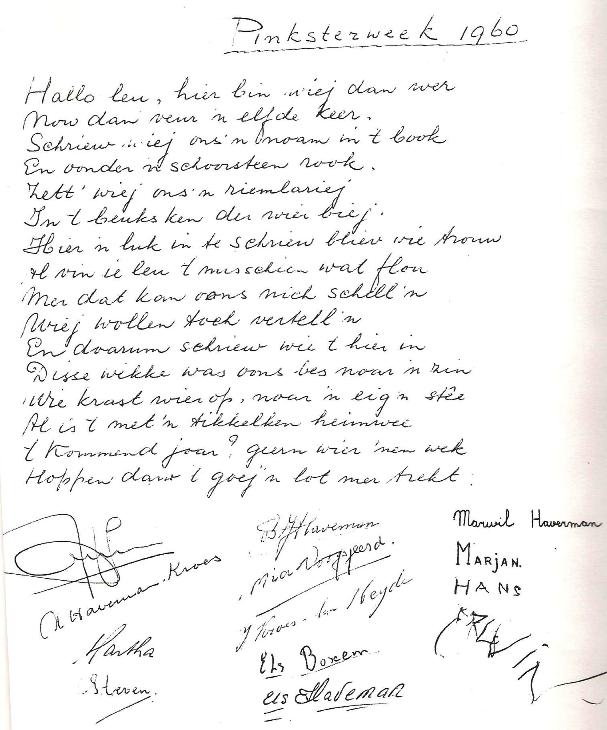 Pinksterweek 1960
Hallo leu, hier bin wiej dan wer
Now dan veur 'n elfde keer.
Schriew wiej ons'n noam in 't book
En oonder 'n schoorsteen rook.
Zett' wiej ons'n riemlariej
In 't beuksken der wier biej.
Hier 'n luk in te schriew bliev wie trouw
Al vin ie leu 't musschien wat flou
Mer dat kan oons nich schell'n
Wiej wollen toch vertell'n
En doarum schriew wie 't hier in
Disse wikke was oons bes noar 'n zin
Wie krast wier op, noar 'n eig'n stêe
Al is 't met 'n tikkelken heimwee
't Kommend joar? geern wier 'nen wek
Hoppen daw 't goej'n lot mer trekt.
Haverman-Kroes
B.J. Haverman
Marwil Haverman
Marjan.
HANS
Martha
J Kroes- Heyde
Steven.
Els Boxem
Els Haveman